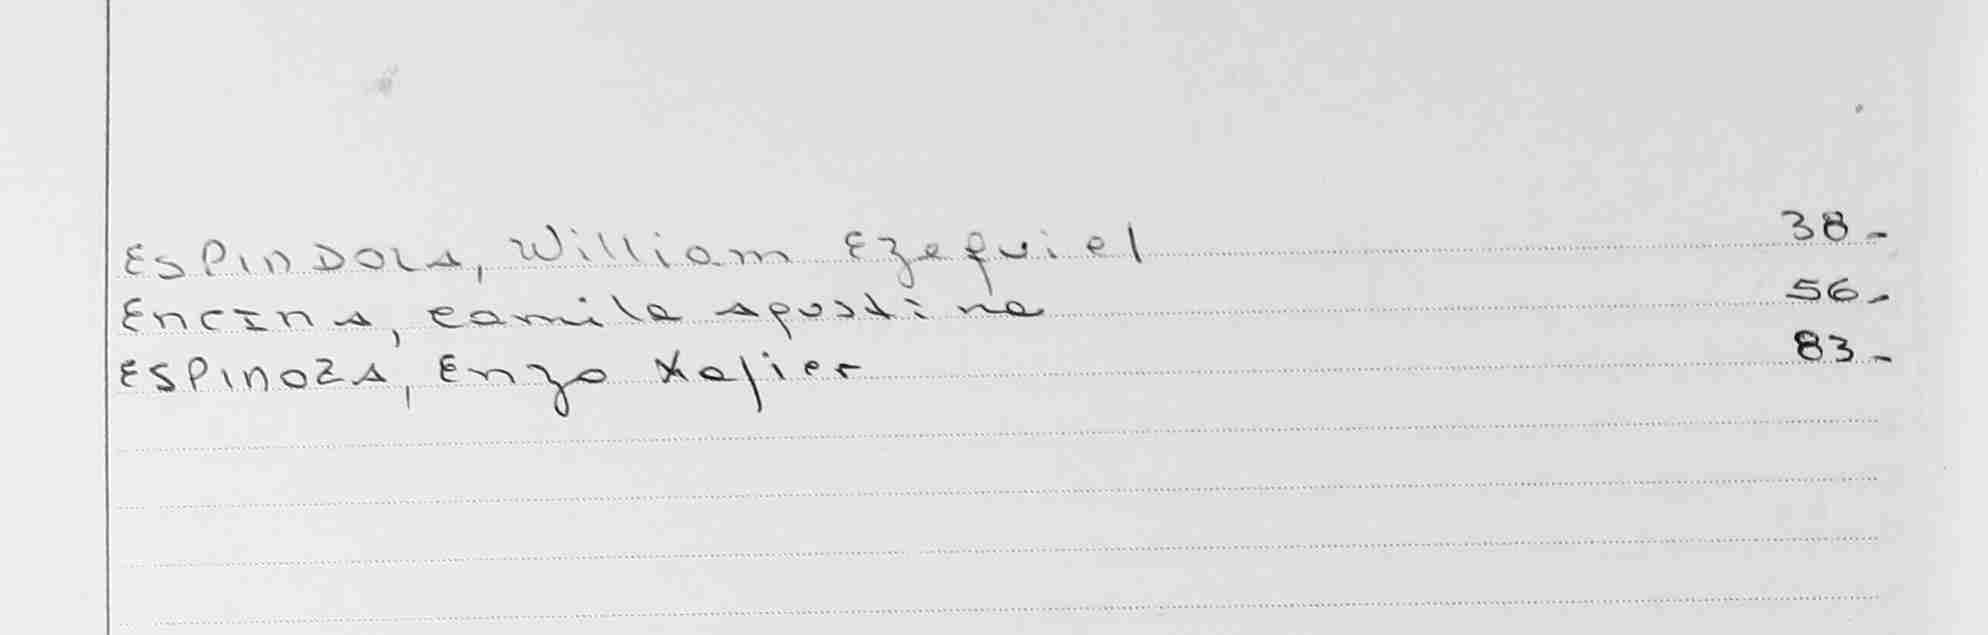 ESPINDOLA, William Ezequiel 38-
ENCINA, Camila Agustina 56-
ESPINOZA, Enzo Xafier 83-